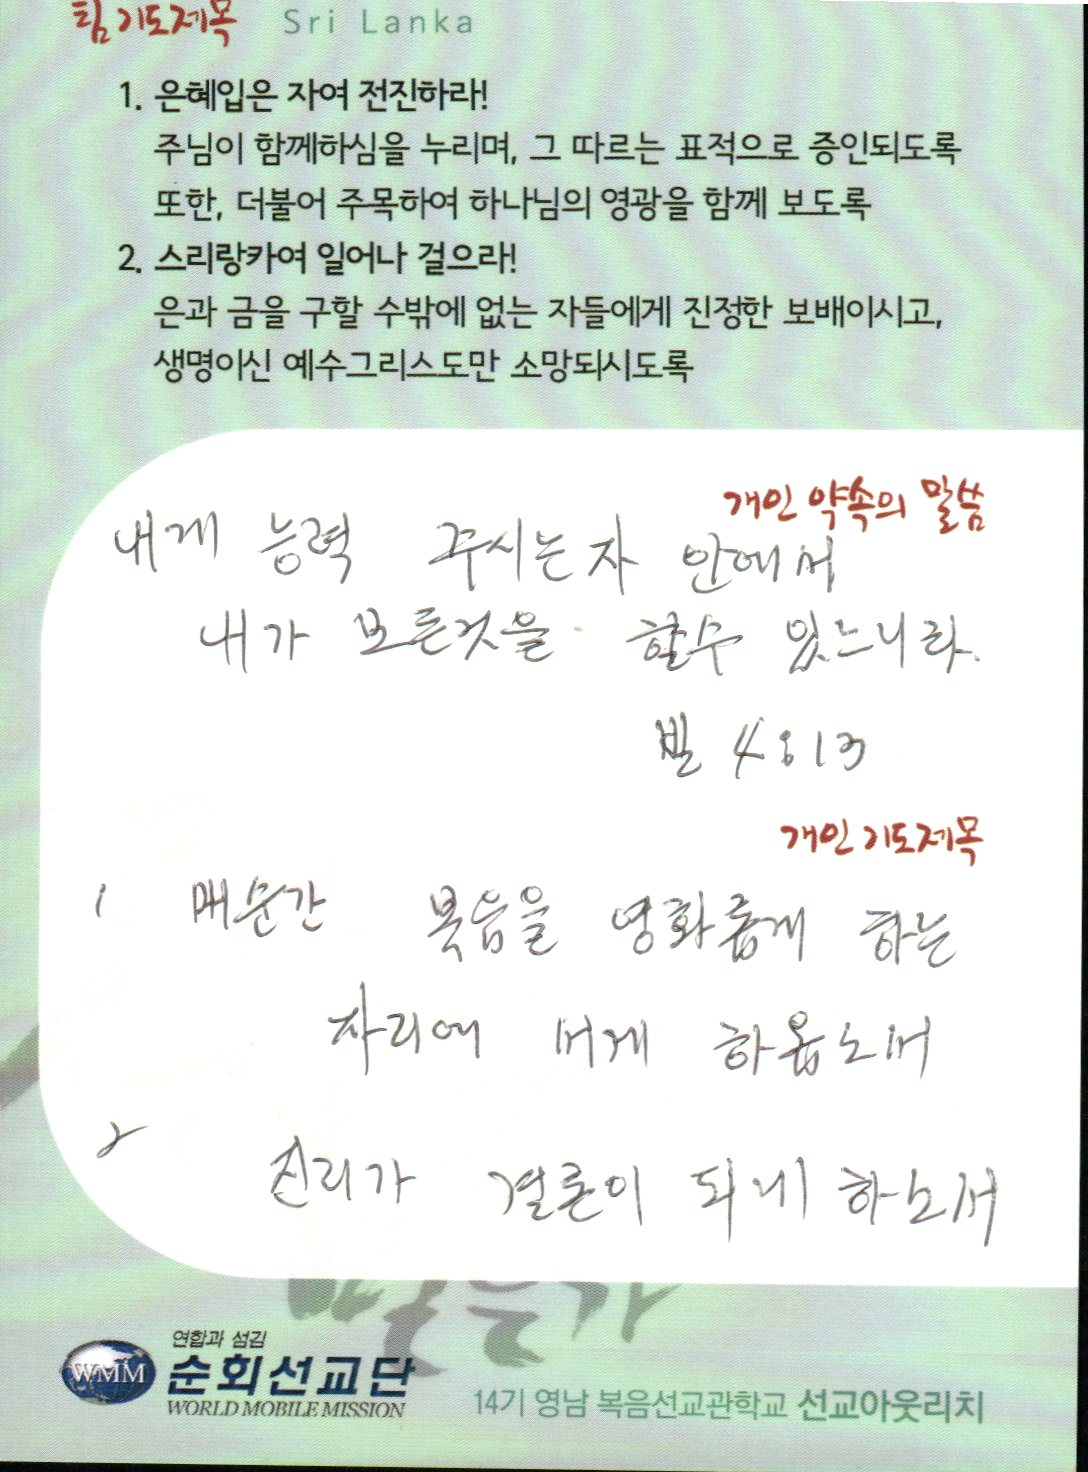 팀 기도제목 Sri Lanka
1. 은혜입은 자여 전진하라!
주님이 함께하심을 누리며, 그 따르는 표적으로 증인되도록
또한, 더불어 주목하여 하나님의 영광을 함께 보도록
2. 스리랑카여 일어나 걸으라!
은과 금을 구할 수밖에 없는 자들에게 진정한 보배이시고,
생명이신 예수그리스도만 소망되시도록
개인 약속의 말씀
내게 능력 주시는자 안에서
내가 모든것을 할수 있느니라.
빌 4:13
개인 기도제목
1 매순간 복음을 영화롭게 하는
자리에 서게 하옵소서
2 진리가 결론이 되게 하소서
연합과 섬김
WMM 순회선교단
WORLD MOBILE MISSION
14기 영남 복음선교관학교 선교아웃리치